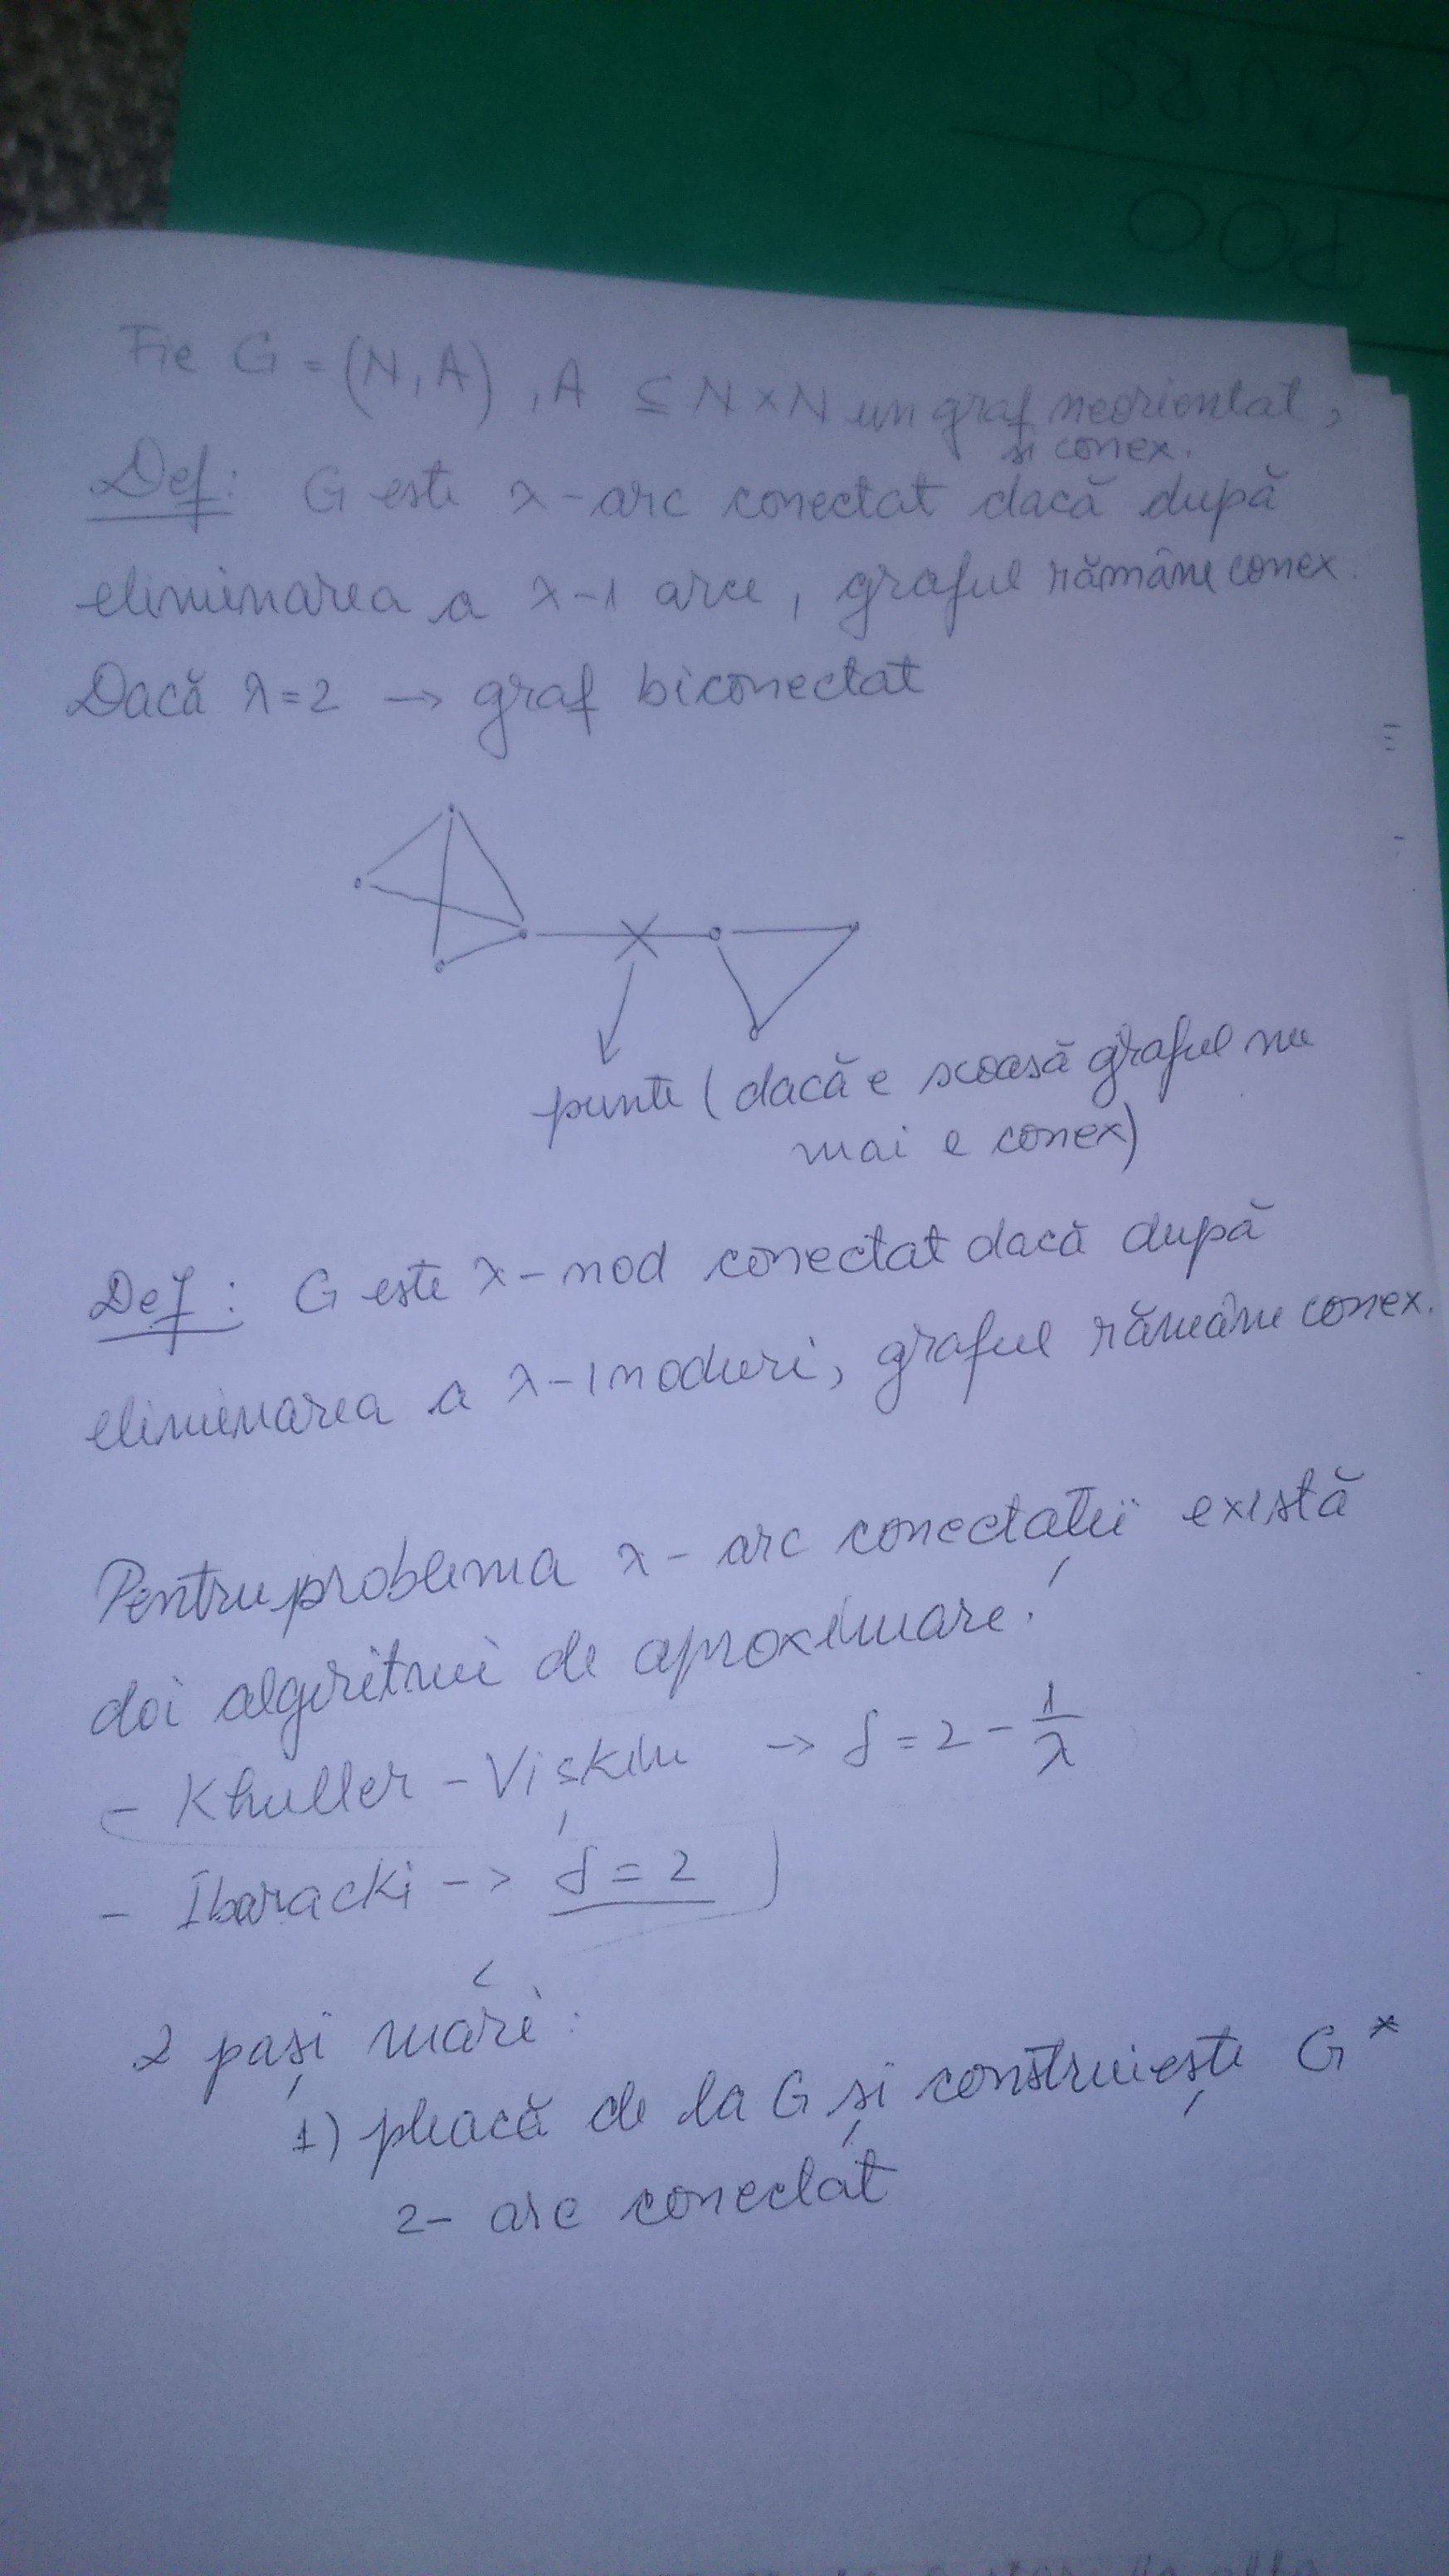 CURS
POO
Fie G = (N, A), A ⊆ N × N un graf neorientat,
si conex.
Def: G este λ-arc conectat dacă după
eliminarea a λ-1 arce, graful rămâne conex.
Dacă λ=2 → graf biconectat
punte (dacă e scoasă graful nu
mai e conex)
Def: G este λ-nod conectat dacă după
eliminarea a λ-1 noduri, graful rămâne conex.
Pentru problema λ-arc conectații există
doi algoritmi de aproximare:
- Khuller - Vișkin → δ = 2 - 1/λ
- Ibaracki -> δ = 2
2 pași mari:
1) pleacă de la G și construiește G*
2- arc conectat